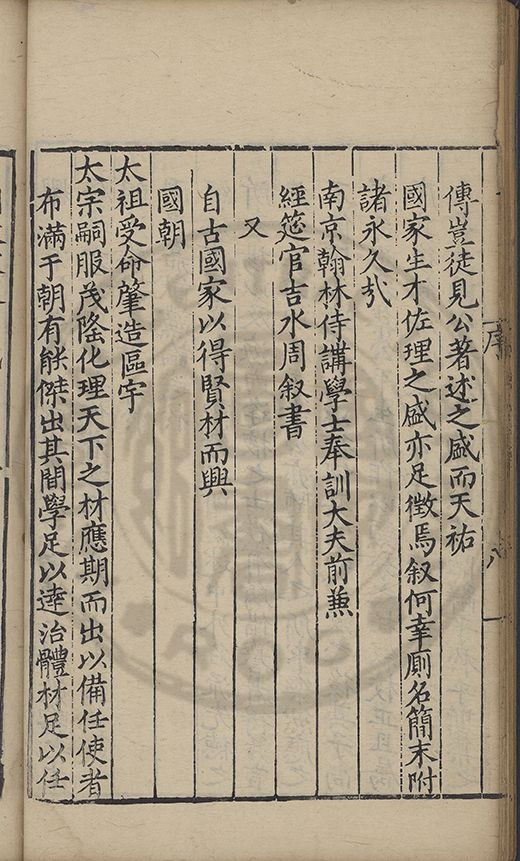 傳豈徒見公著述之盛而天祐
國家生才佐理之盛亦足徵焉叙何幸廁名簡末附
諸永久㢤
南京翰林侍講學士奉訓大夫前兼
經筵官吉水周叙書
又
自古國家以得賢材而興
國朝
太祖受命肇造區宇
太宗嗣服茂隆化理天下之材應期而出以備任使者
布滿于朝有能傑出其間學足以達治體材足以任
序
八